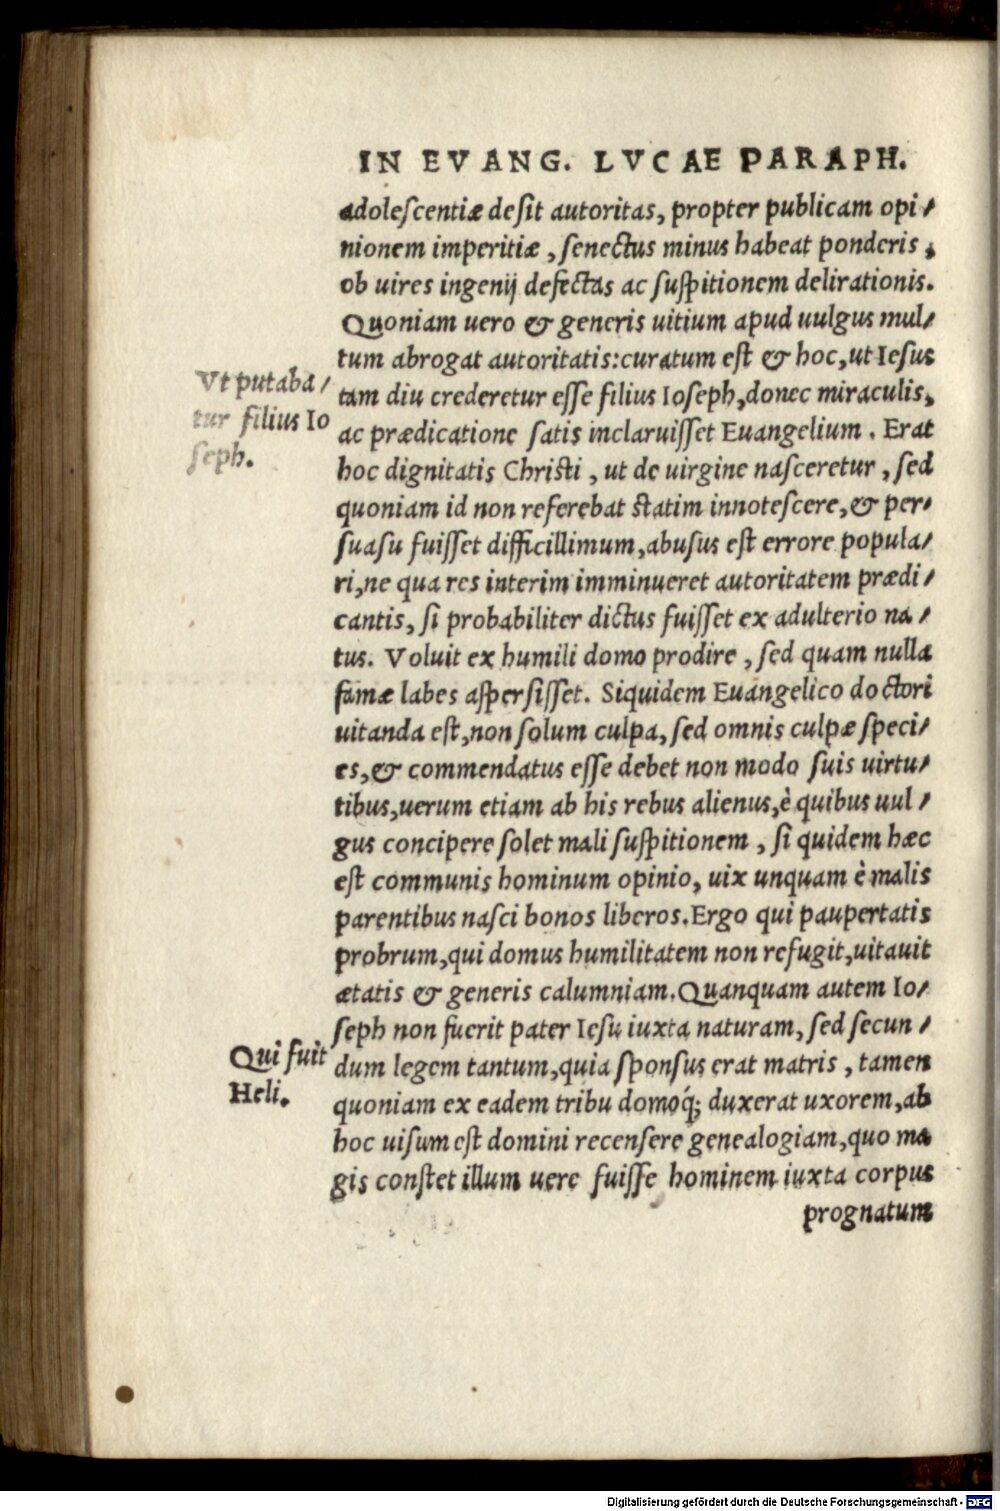 IN EVANG. LVCAE PARAPH.
adolescentiæ desit autoritas, propter publicam opi/
nionem imperitiæ, senectus minus habeat ponderis,
ob uires ingenij defectas ac suspitionem delirationis.
Quoniam uero & generis uitium apud uulgus mul/
tum abrogat autoritatis: curatum est & hoc, ut Iesus
Vt putaba/
tur filius Io
seph.
tam diu crederetur esse filius Ioseph, donec miraculis,
ac prædicatione satis inclaruisset Euangelium. Erat
hoc dignitatis Christi, ut de uirgine nasceretur, sed
quoniam id non referebat statim innotescere, & per/
suasu fuisset difficillimum, abusus est errore popula/
ri, ne qua res interim imminueret autoritatem prædi/
cantis, si probabiliter dictus fuisset ex adulterio na/
tus. Voluit ex humili domo prodire, sed quam nulla
famæ labes aspersisset. Siquidem Euangelico doctori
uitanda est, non solum culpa, sed omnis culpæ speci/
es, & commendatus esse debet non modo suis uirtu/
tibus, uerum etiam ab his rebus alienus, è quibus uul/
gus concipere solet mali suspitionem, si quidem hæc
est communis hominum opinio, uix unquam è malis
parentibus nasci bonos liberos. Ergo qui paupertatis
probrum, qui domus humilitatem non refugit, uitauit
ætatis & generis calumniam. Quanquam autem Io/
seph non fuerit pater Iesu iuxta naturam, sed secun/
Qui fuit
Heli.
dum legem tantum, quia sponsus erat matris, tamen
quoniam ex eadem tribu domoq́; duxerat uxorem, ab
hoc uisum est domini recensere genealogiam, quo ma
gis constet illum uere fuisse hominem iuxta corpus
prognatum
Digitalisierung gefördert durch die Deutsche Forschungsgemeinschaft - DFG